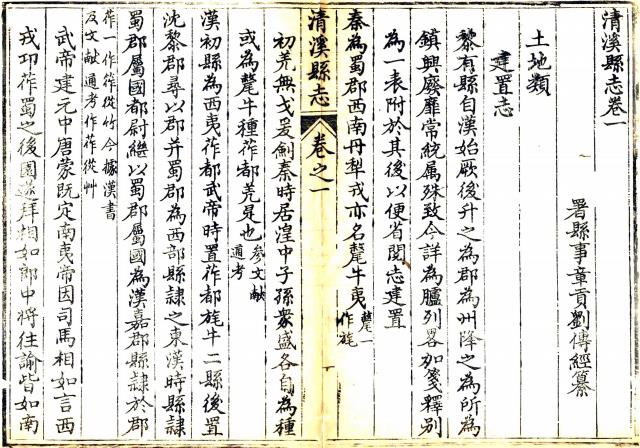 清溪縣志卷一
署縣事章貢劉傳經纂
土地類
建置志
黎有縣自漢始厥後升之為郡為州降之為所為
鎮興廢靡常統属殊致今詳為臚列畧加箋釋別
為一表附於其後以便省閱志建置
秦為蜀郡西南丹犁戎亦名氂牛夷氂一作旄
清溪縣志 卷之一
初羌無弋爰劍秦時居湟中子孫衆盛各自為種
或為氂牛種莋都羌是也參文獻通考
漢初縣為西夷莋都武帝時置莋都旄牛二縣後置
沈黎郡尋以郡并蜀郡為西部縣隸之東漢時縣隸
蜀郡屬國都尉繼以蜀郡屬國為漢嘉郡縣隸於郡
莋一作筰從竹今據漢書及文献通考作莋從艸
武帝建元中唐蒙既定南夷帝因司馬相如言西
戎邛莋蜀之後園遂拜相如郎中將往諭皆如南